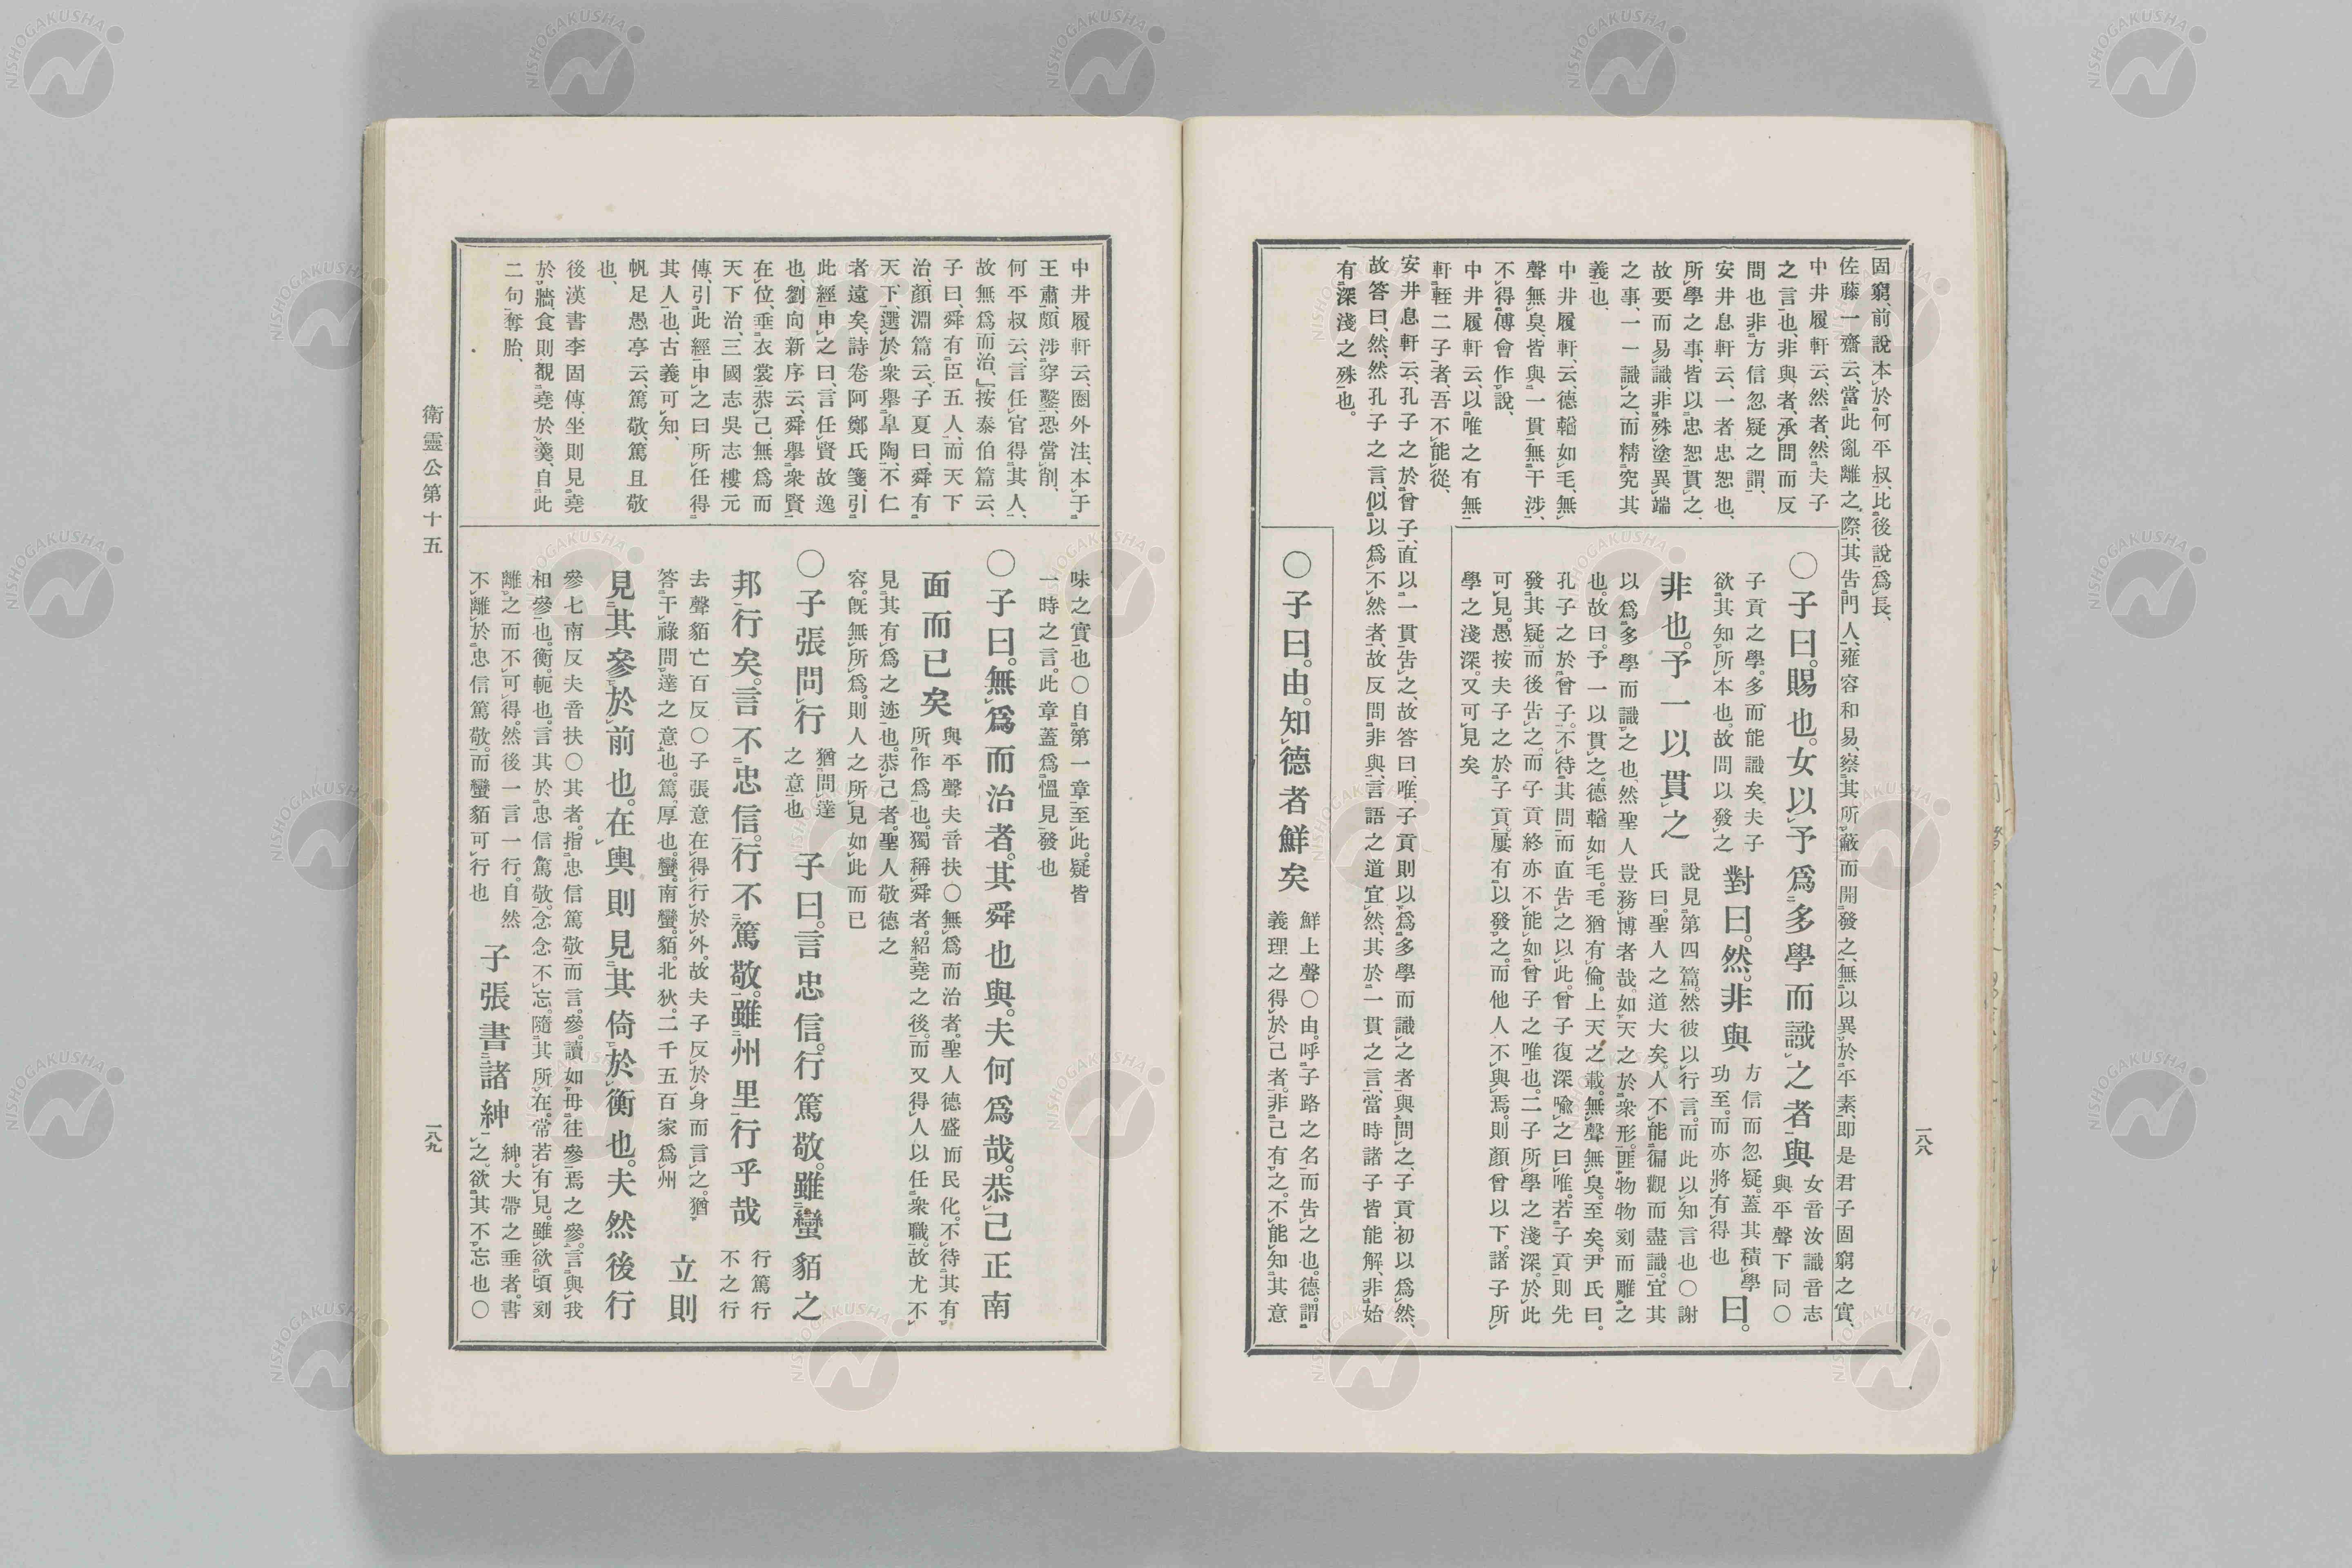 固窮、前說本於何平叔、比後說爲長、
佐藤一齋云、當此亂離之際、其告門人、雍容和易、察其所蔽而開發之、無以異於平素、即是君子固窮之實、
中井履軒云、然者、然夫子
之言也、非與者、承問而反
問也、非方信忽疑之謂、
安井息軒云、一者忠恕也、
所學之事、皆以忠恕貫之、
故要而易識、非殊塗異端
之事、一一識之、而精究其
義也、
中井履軒、云、德輶如毛、無
聲無臭、皆與一貫無干涉、
不得傅會作說、
中井履軒云、以唯之有無
軒輊二子者、吾不能從、
安井息軒云、孔子之於曾子、直以一貫告之、故答曰唯、子貢則以爲多學而識之者與問之、子貢初以爲然、
故答曰、然、然孔子之言、似以爲不然者、故反問非與、言語之道宜然、其於一貫之言、當時諸子皆能解、非始
有深淺之殊也。
〇子曰。賜也。女以予爲多學而識之者與
女音汝識音志
與平聲下同〇
子貢之學。多而能識矣。夫子
欲其知所本也。故問以發之
對曰。然。非與
方信而忽疑。蓋其積學
功至。而亦將有得也
曰。
非也。予一以貫之
說見第四篇。然彼以行言。而此以知言也〇謝
氏曰。聖人之道大矣。人不能徧觀而盡識。宜其
以爲多學而識之也。然聖人豈務博者哉。如天之於衆形。匪物物刻而雕之
也。故曰。予一以貫之。德輶如毛。毛猶有倫。上天之載。無聲無臭。至矣。尹氏曰。
孔子之於曾子。不待其問而直告之以此。曾子復深喩之曰唯。若子貢則先
發其疑。而後告之。而子貢終亦不能如曾子之唯也。二子所學之淺深。於此
可見。愚按夫子之於子貢。屢有以發之。而他人不與焉。則顏曾以下。諸子所
學之淺深。又可見矣
〇子曰。由。知德者鮮矣
鮮上聲〇由。呼子路之名而告之也。德。謂
義理之得於己者。非己有之。不能知其意
一八八
中井履軒云、圈外注、本于
王肅、頗涉穿鑿、恐當削、
何平叔云、言任官得其人、
故無爲而治、』按泰伯篇云、
子曰、舜有臣五人、而天下
治、顏淵篇云、子夏曰、舜有
天下、選於衆擧皐陶、不仁
者遠矣、詩卷阿鄭氏箋、引
此經申之曰、言任賢故逸
也、劉向新序云、舜擧衆賢
在位、垂衣裳、恭己無爲而
天下治、三國志吳志樓元
傳、引此經申之曰所任得
其人也、古義可知、
帆足愚亭云、篤敬、篤且敬
也、
後漢書李固傳、坐則見堯
於牆、食則覩堯於羹、自此
二句奪胎、
味之實也〇自第一章至此。疑皆
一時之言。此章蓋爲慍見發也
〇子曰。無爲而治者。其舜也與。夫何爲哉。恭己正南
面而已矣
與平聲夫音扶〇無爲而治者。聖人德盛而民化。不待其有
所作爲也。獨稱舜者。紹堯之後。而又得人以任衆職。故尤不
見其有爲之迹也。恭己者。聖人敬德之
容。旣無所爲。則人之所見如此而已
〇子張問行
猶問達
之意也
子曰。言忠信。行篤敬。雖蠻貊之
邦行矣。言不忠信。行不篤敬。雖州里行乎哉
行篤行
不之行
去聲貊亡百反〇子張意在得行於外。故夫子反於身而言之。猶
答干祿問達之意也。篤。厚也。蠻。南蠻。貊。北狄。二千五百家爲州
立則
見其參於前也。在輿則見其倚於衡也。夫然後行
參七南反夫音扶〇其者。指忠信篤敬而言。參。讀如毋往參焉之參。言與我
相參也。衡。軛也。言其於忠信篤敬。念念不忘。隨其所在。常若有見。雖欲頃刻
離之而不可得。然後一言一行。自然
不離於忠信篤敬。而蠻貊可行也
子張書諸紳
紳。大帶之垂者。書
之。欲其不忘也〇
衛靈公第十五
一八九